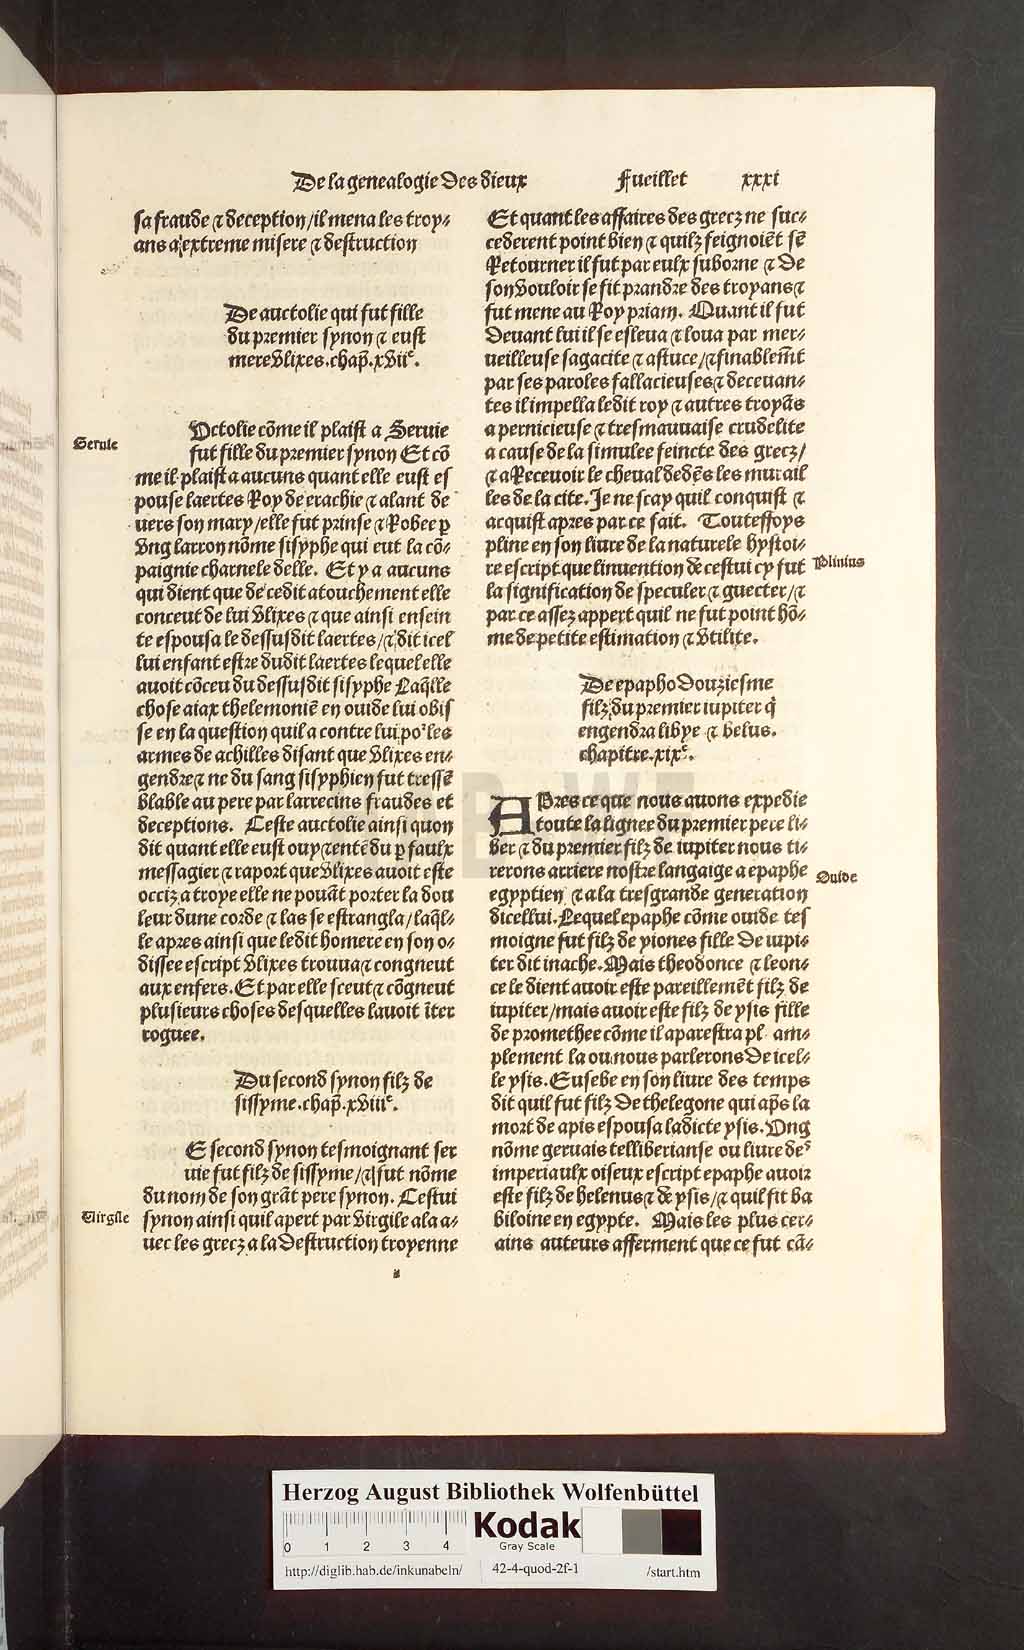 De la genealogie des dieux Fueillet xxxi
sa fraude ⁊ deception/il mena les troy-
ans a extreme misere ⁊ destruction
De auctolie qui fut fille
du premier synon ⁊ eust
mere vlixes.chap̄.xviiᵉ.
Uctolie cōme il plaist a Seruie
Seruie
fut fille du premier synon Et cō
me il plaist a aucuns quant elle eust es
pouse laertes Roy de erachie ⁊ alant de
uers son mary/elle fut prinse ⁊ Robee ꝑ
vng larron nōme sisyphe qui eut la cō-
paignie charnele delle. Et y a aucuns
qui dient que de cedit atouchement elle
conceut de lui vlixes ⁊ que ainsi ensein
te espousa le dessusdit laertes/⁊ dit icel
lui enfant estre dudit laertes lequel elle
auoit cōceu du dessusdit sisyphe Laq̄lle
chose aiax thelemoniē en ouide lui obiis
se en la question quil a contre lui poꝰ les
armes de achilles disant que vlixes en-
gendre ⁊ ne du sang sisyphien fut tressē
blable au pere par larrecins fraudes et
deceptions. Ceste auctolie ainsi quon
dit quant elle eust ouy ⁊ entēdu ꝑ faulx
messagier ⁊ raport que vlixes auoit este
occiz a troye elle ne pouāt porter la dou
leur dune corde ⁊ las se estrangla/laq̄l-
le apres ainsi que ledit homere en son o-
dissee escript vlixes trouua ⁊ congneut
aux enfers. Et par elle sceut ⁊ cōgneut
plusieurs choses desquelles lauoit īter
roguee.
Du second synon filz de
sissyme.chap̄.xviiiᵉ.
E second synon tesmoignant ser
uie fut filz de sissyme/⁊ fut nōme
du nom de son grāt pere synon. Cestui
Virgile
synon ainsi quil apert par virgile ala a-
uec les grecz a la destruction troyenne
ii
Et quant les affaires des grecz ne suc-
cederent point bien ⁊ quilz feignoiēt sē
Retourner il fut par eulx suborne ⁊ de
son vouloir se fit prandre des troyans ⁊
fut mene au Roy priam. Quant il fut
deuant lui il se esleua ⁊ loua par mer-
ueilleuse sagacite ⁊ astuce/⁊ finablem̄t
par ses paroles fallacieuses ⁊ deceuan-
tes il impella ledit roy ⁊ autres troyās
a pernicieuse ⁊ tresmauuaise crudelite
a cause de la simulee feincte des grecz/
⁊ a Receuoir le cheual dedēs les murail
les de la cite. Je ne scay quil conquist ⁊
acquist apres par ce fait. Toutesfoys
pline en son liure de la naturele hystoi-
re escript que linuention de cestui cy fut
Plinius
la signification de speculer ⁊ guecter/⁊
par ce assez appert quil ne fut point hō-
me de petite estimation ⁊ vtilite.
De epapho douziesme
filz du premier iupiter q̄
engendra libye ⁊ belus.
chapitre.xixᵉ.
APres ce que nous auons expedie
toute la lignee du premier pere li-
ber ⁊ du premier filz de iupiter nous ti-
rerons arriere nostre langaige a epaphe
Ouide
egyptien ⁊ a la tresgrande generation
dicellui. Lequel epaphe cōme ouide tes
moigne fut filz de yiones fille de iupi-
ter dit inache. Mais theodonce ⁊ leon-
ce le dient auoir este pareillemēt filz de
iupiter/mais auoir este filz de ysis fille
de promethee cōme il aparestra pl am-
plement la ou nous parlerons de icel-
le ysis. Eusebe en son liure des temps
dit quil fut filz de thelegone qui ap̄s la
mort de apis espousa ladicte ysis. Vng
nōme geruais telliberianse ou liure deˢ
imperiaulx oiseux escript epaphe auoir
este filz de helenus ⁊ de ysis/⁊ quil fit ba
biloine en egypte. Mais les plus cer-
ains auteurs afferment que ce fut cā-
Herzog August Bibliothek Wolfenbüttel
0 1 2 3 4
Kodak
Gray Scale
http://diglib.hab.de/inkunabeln/ 42-4-quod-2f-1 /start.htm